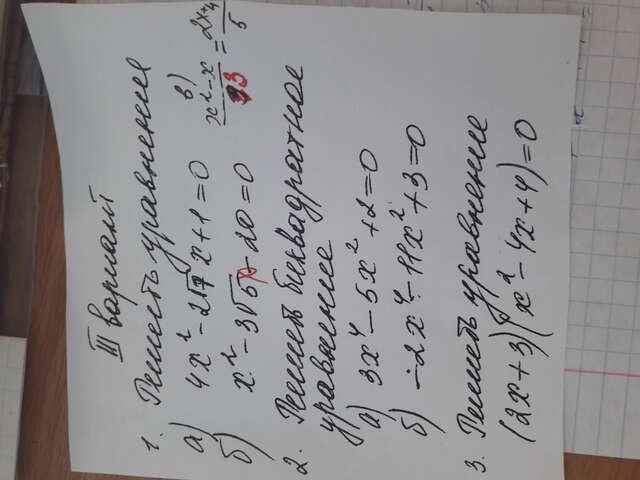 III вариант
1. Решить уравнения
а) 4x² - 2√7 x + 1 = 0
б) x² - 3√5x - 20 = 0
в) (x² - x)/3 = (2x+4)/5
2. Решить биквадратное
уравнение
а) 3x⁴ - 5x² + 2 = 0
б) -2x⁴ - 11x² + 3 = 0
3. Решить уравнение
(2x+3)(x² - 4x + 4) = 0